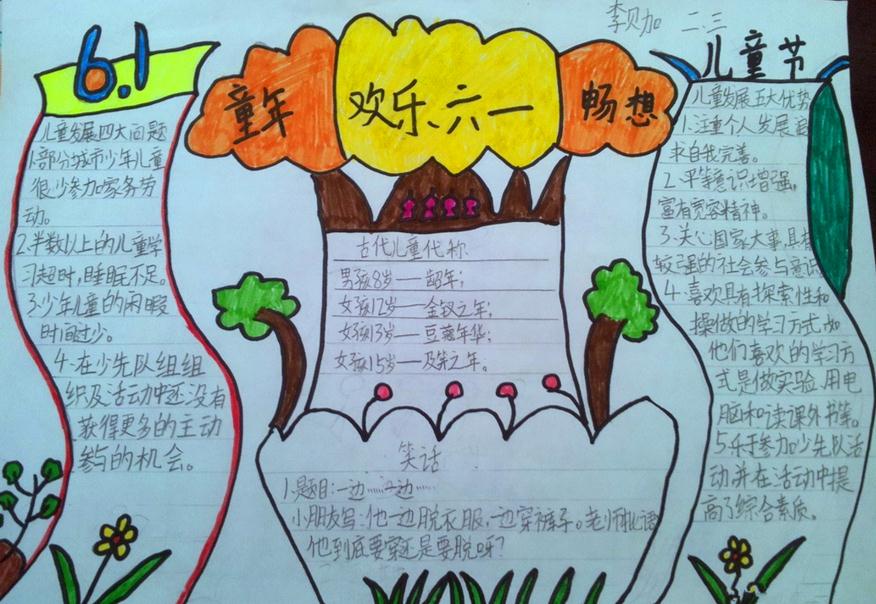 李贝加 二.三
6.1
童年 欢乐六一 畅想
儿童节
儿童发展四大问题
1.部分城市少年儿童
很少参加家务劳
动。
2.半数以上的儿童学
习超时,睡眠不足。
3.少年儿童的闲暇
时间过少。
4.在少先队组组
织及活动中还没有
获得更多的主动
参与的机会。
古代儿童代称
男孩8岁——龆年;
女孩12岁——金钗之年;
女孩13岁——豆蔻年华;
女孩15岁——及笄之年。
笑话
1.题目:一边……一边……
小朋友写:他一边脱衣服,一边穿裤子。老师批语
他到底要穿还是要脱呀?
儿童发展五大优势
1.注重个人发展 追
求自我完善。
2.平等意识增强,
富有宽容精神。
3.关心国家大事,具有
较强的社会参与意识
4.喜欢具有探索性和
操做的学习方式,如
他们喜欢的学习方
式是做实验、用电
脑和读课外书等。
5.乐于参加少先队活
动,并在活动中提
高了综合素质。